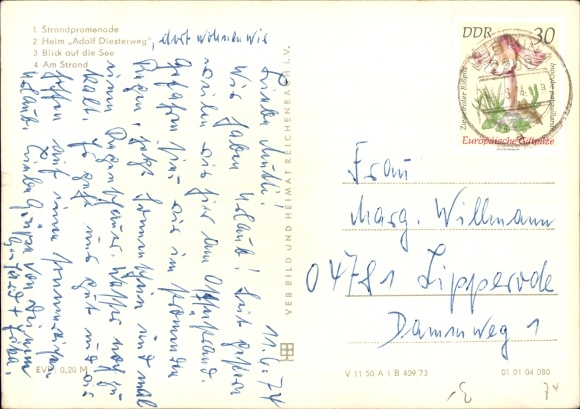 1 Strandpromenade
2 Heim „Adolf Diesterweg", dort wohnen wir
3 Blick auf die See
4 Am Strand
EVP 0,20 M
11.6.74
Liebe Mutti!
Wir haben Urlaub! Seit gestern
weilen wir hier am Ostseestrand.
Gefahren sind wir im strömenden
Regen, jetzt Sonnenschein und mal
einen Regenschauer. Wasser noch zu
kalt. Es geht uns gut und wir
hoffen auf einen sonnenreichen
Urlaub. Liebe Grüße von Deinen
VEB BILD UND HEIMAT REICHENBACH i. V.
DDR 30
Ziegelroter Rißpilz
Inocybe patouillardii
Europäische Giftpilze
Frau
Marg. Willmann
04781 Lipperode
Dammweg 1
V 11 50 A 1 B 409/73
01 01 04 080
74